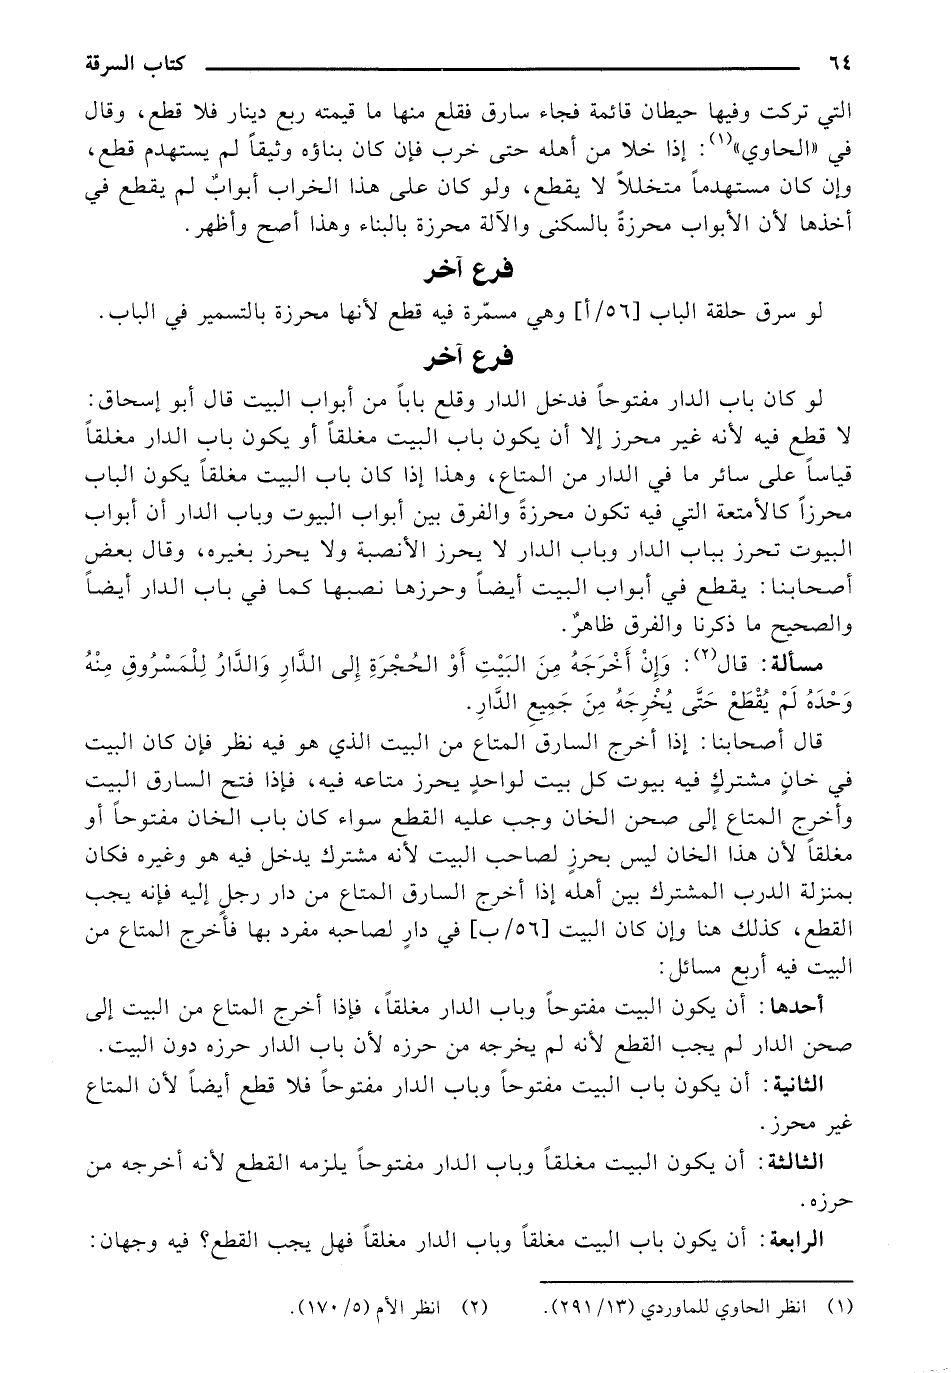 ٦٤ كتاب السرقة
التي تركت وفيها حيطان قائمة فجاء سارق فقلع منها ما قيمته ربع دينار فلا قطع، وقال
في «الحاوي»(١): إذا خلا من أهله حتى خرب فإن كان بناؤه وثيقاً لم يستهدم قطع،
وإن كان مستهدماً متخللاً لا يقطع، ولو كان على هذا الخراب أبوابٌ لم يقطع في
أخذها لأن الأبواب محرزةً بالسكنى والآلة محرزة بالبناء وهذا أصح وأظهر.
فرع آخر
لو سرق حلقة الباب [٥٦/أ] وهي مسمّرة فيه قطع لأنها محرزة بالتسمير في الباب.
فرع آخر
لو كان باب الدار مفتوحاً فدخل الدار وقلع باباً من أبواب البيت قال أبو إسحاق:
لا قطع فيه لأنه غير محرز إلا أن يكون باب البيت مغلقاً أو يكون باب الدار مغلقاً
قياساً على سائر ما في الدار من المتاع، وهذا إذا كان باب البيت مغلقاً يكون الباب
محرزاً كالأمتعة التي فيه تكون محرزةً والفرق بين أبواب البيوت وباب الدار أن أبواب
البيوت تحرز بباب الدار وباب الدار لا يحرز الأنصبة ولا يحرز بغيره، وقال بعض
أصحابنا: يقطع في أبواب البيت أيضاً وحرزها نصبها كما في باب الدار أيضاً
والصحيح ما ذكرنا والفرق ظاهرٌ.
مسألة: قال(٢): وَإِنْ أَخْرَجَهُ مِنَ البَيْتِ أَوْ الحُجْرَةِ إِلى الدَّارِ وَالدَّارُ لِلْمَسْرُوقِ مِنْهُ
وَحْدَهُ لَمْ يُقْطَعْ حَتَّى يُخْرِجَهُ مِنَ جَمِيعِ الدَّارِ.
قال أصحابنا: إذا أخرج السارق المتاع من البيت الذي هو فيه نظر فإن كان البيت
في خانٍ مشتركٍ فيه بيوت كل بيت لواحدٍ يحرز متاعه فيه، فإذا فتح السارق البيت
وأخرج المتاع إلى صحن الخان وجب عليه القطع سواء كان باب الخان مفتوحاً أو
مغلقاً لأن هذا الخان ليس بحرزٍ لصاحب البيت لأنه مشترك يدخل فيه هو وغيره فكان
بمنزلة الدرب المشترك بين أهله إذا أخرج السارق المتاع من دار رجلٍ إليه فإنه يجب
القطع، كذلك هنا وإن كان البيت [٥٦/ب] في دارٍ لصاحبه مفرد بها فأخرج المتاع من
البيت فيه أربع مسائل:
أحدها: أن يكون البيت مفتوحاً وباب الدار مغلقاً، فإذا أخرج المتاع من البيت إلى
صحن الدار لم يجب القطع لأنه لم يخرجه من حرزه لأن باب الدار حرزه دون البيت.
الثانية: أن يكون باب البيت مفتوحاً وباب الدار مفتوحاً فلا قطع أيضاً لأن المتاع
غير محرز.
الثالثة: أن يكون البيت مغلقاً وباب الدار مفتوحاً يلزمه القطع لأنه أخرجه من
حرزه.
الرابعة: أن يكون باب البيت مغلقاً وباب الدار مغلقاً فهل يجب القطع؟ فيه وجهان:
(١) انظر الحاوي للماوردي (١٣/٢٩١). (٢) انظر الأم (٥/١٧٠).